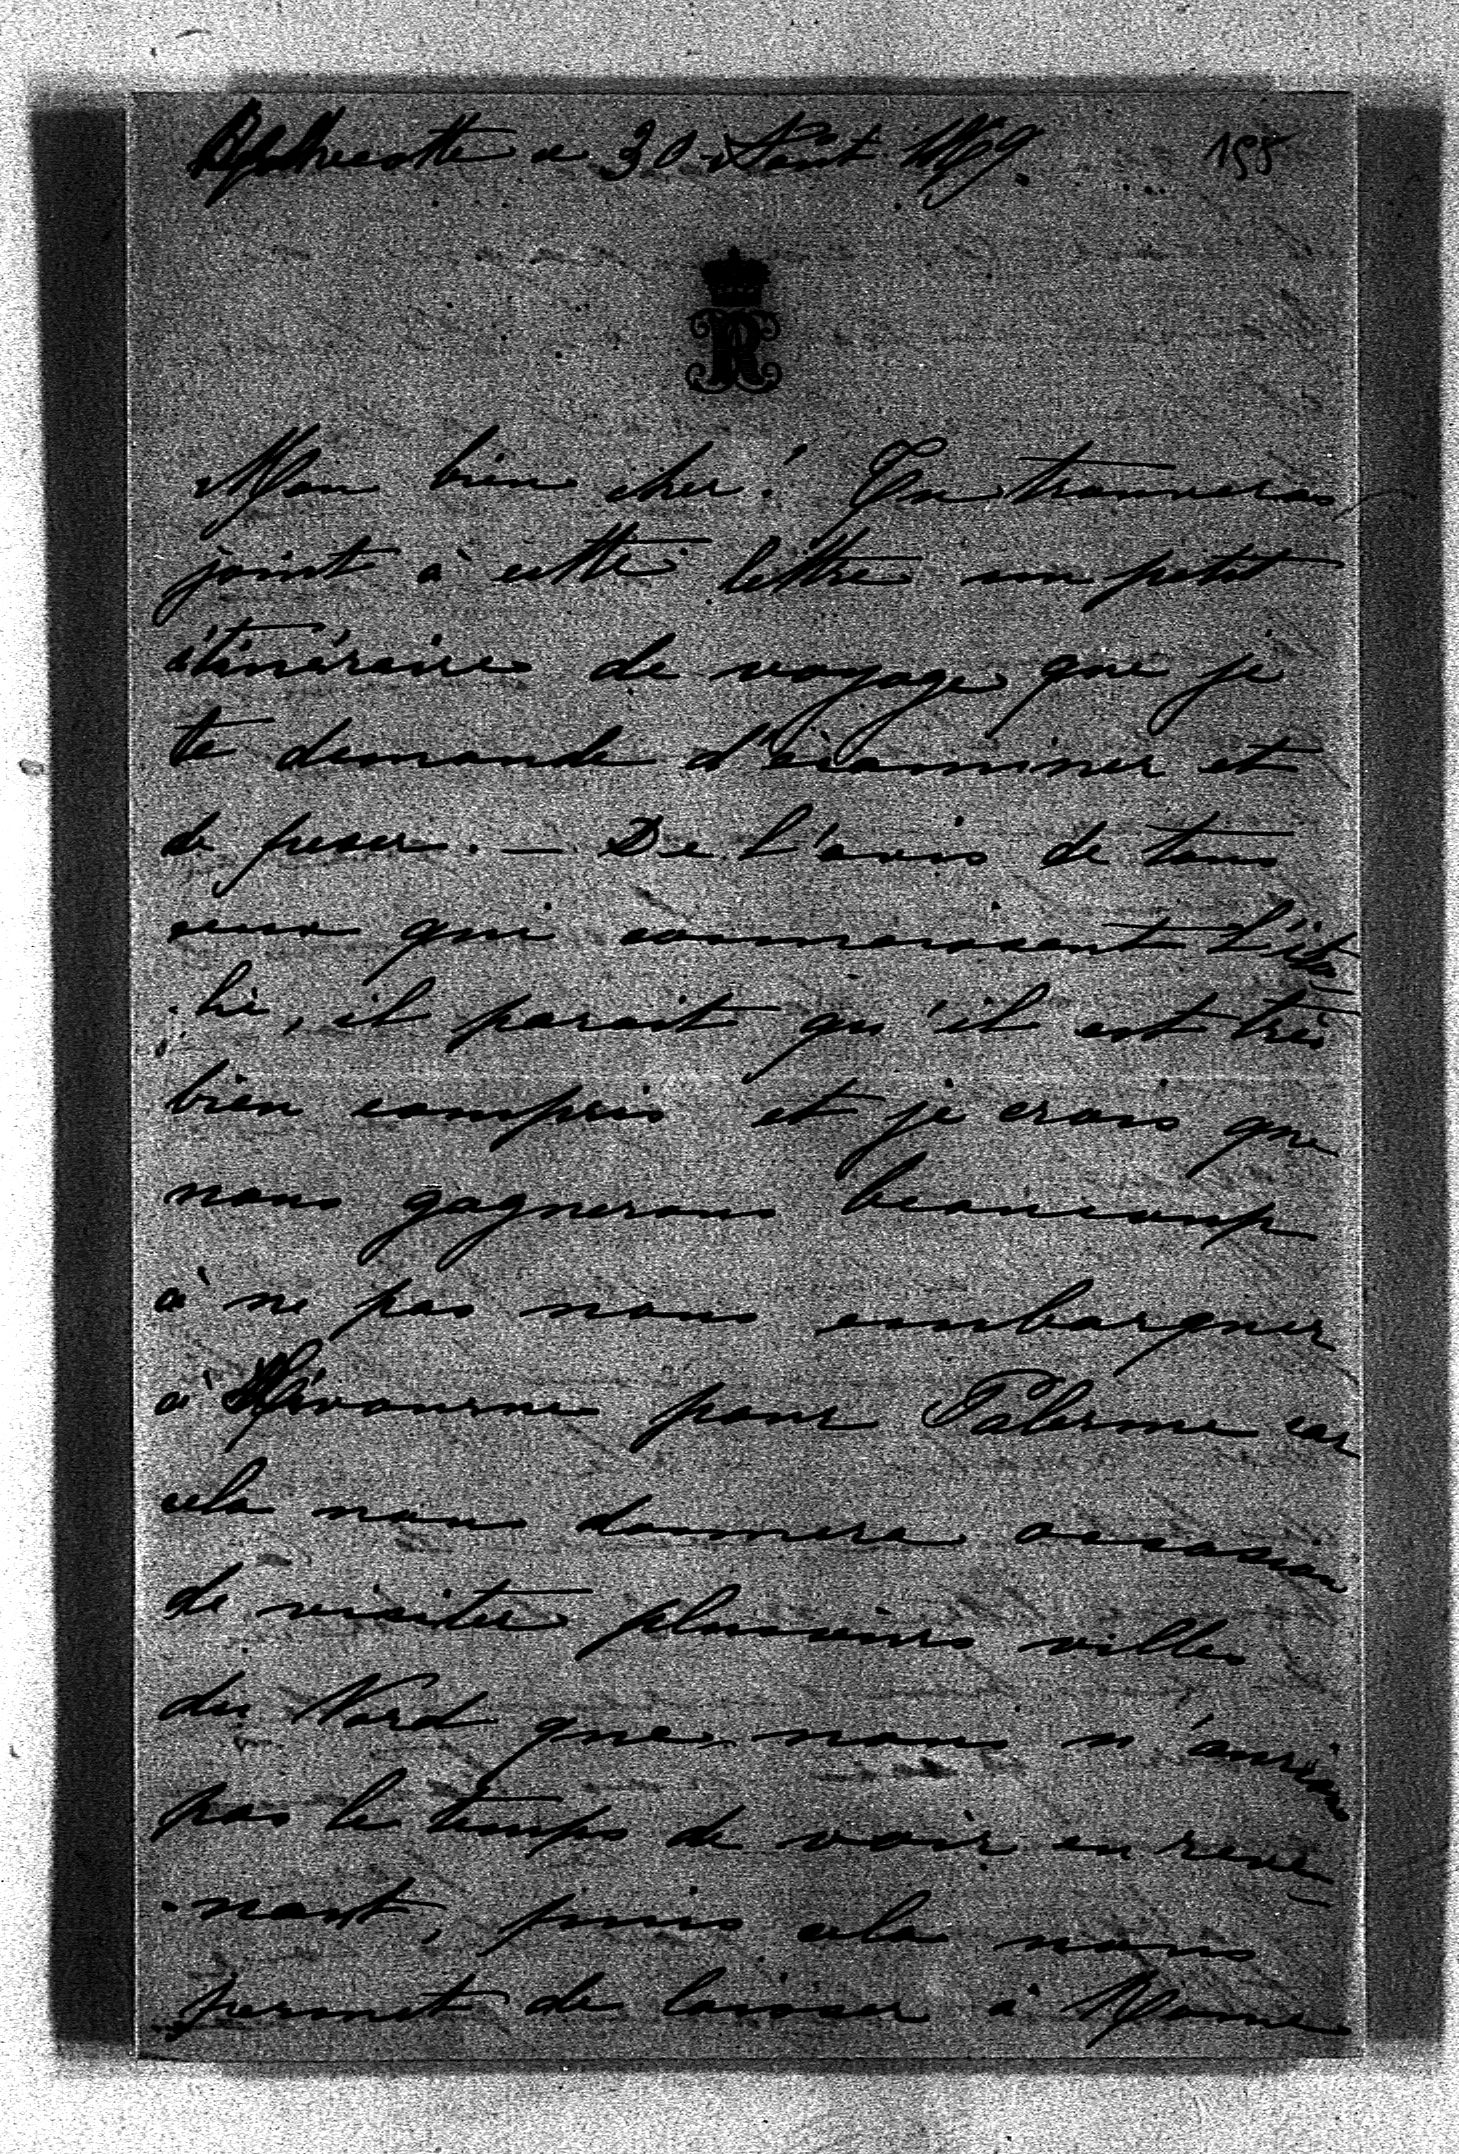 a 30 Août 1869.
195
R
Mon bien cher! Tu trouveras
joint à cette lettre un petit
itinéraire de voyage que je
te demande d'éxaminer et
de peser. — De l'avis de tous
ceux qui connaissent l'ita-
-lie, il parait qu'il est très
bien compris et je crois que
nous gagnerons beaucoup
à ne pas nous embarquer
à Livourne pour Palerme car
cela nous donnera occasion
de visiter plusieurs villes
du Nord que nous n'aurions
pas le temps de voir en reve-
-nant, puis cela nous
permet de laisser à Rome